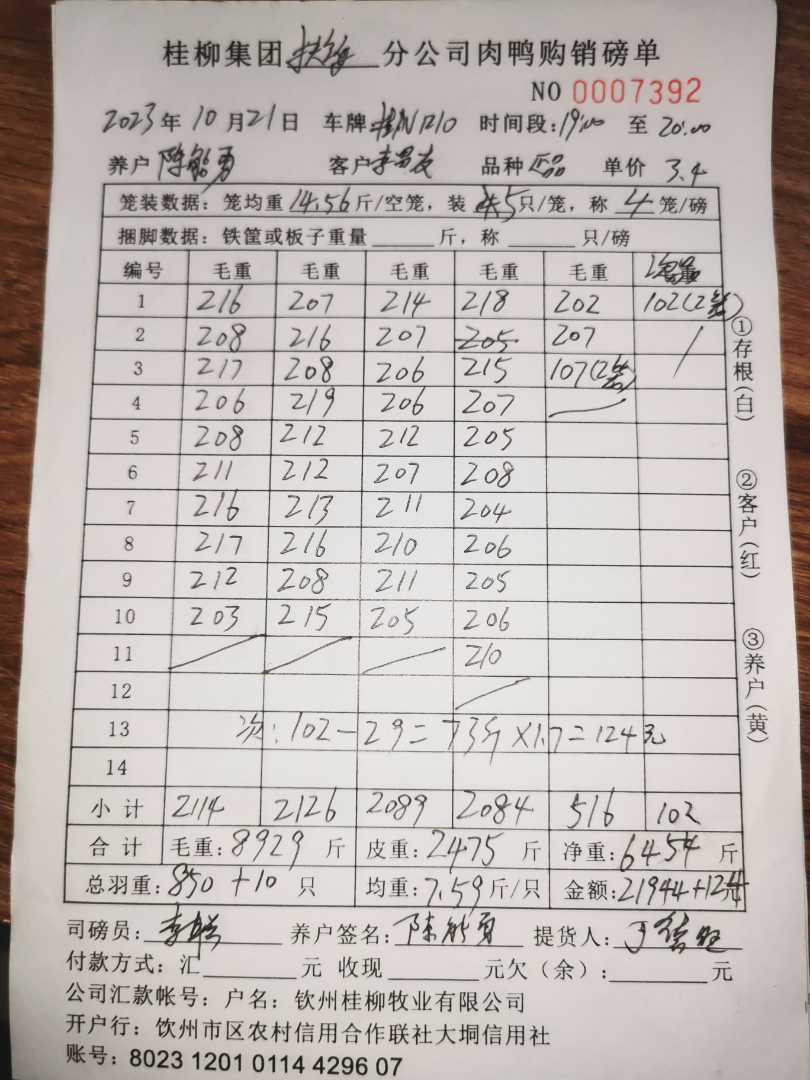 桂柳集团 分公司肉鸭购销磅单
NO 0007392
2023年10月21日 车牌 时间段:19:00 至 20:00
养户 陈能勇 客户 李 品种 正品 单价 3.4
笼装数据: 笼均重 14.56 斤/空笼, 装 5只/笼, 称 4 笼/磅
捆脚数据: 铁筐或板子重量 斤, 称 只/磅
编号 毛重 毛重 毛重 毛重 毛重
1 216 207 214 218 202 102(2笼)
2 208 216 207 205 207
3 217 208 206 215 107(2笼)
4 206 219 206 207
5 208 212 212 205
6 211 212 207 208
7 216 213 211 204
8 217 216 210 206
9 212 208 211 205
10 203 215 205 206
11 210
12
13 次:102-29=73斤×1.7=124元
14
小计 2114 2126 2089 2084 516 102
合计 毛重:8929 斤 皮重:2475 斤 净重:6454 斤
总羽重:850+10 只 均重:7.59斤/只 金额:21944+124元
司磅员: 李 养户签名: 陈能勇 提货人:
付款方式:汇 元 收现 元欠(余): 元
公司汇款帐号: 户名: 钦州桂柳牧业有限公司
开户行: 钦州市区农村信用合作联社大垌信用社
账号: 8023 1201 0114 4296 07
①存根(白)
②客户(红)
③养户(黄)